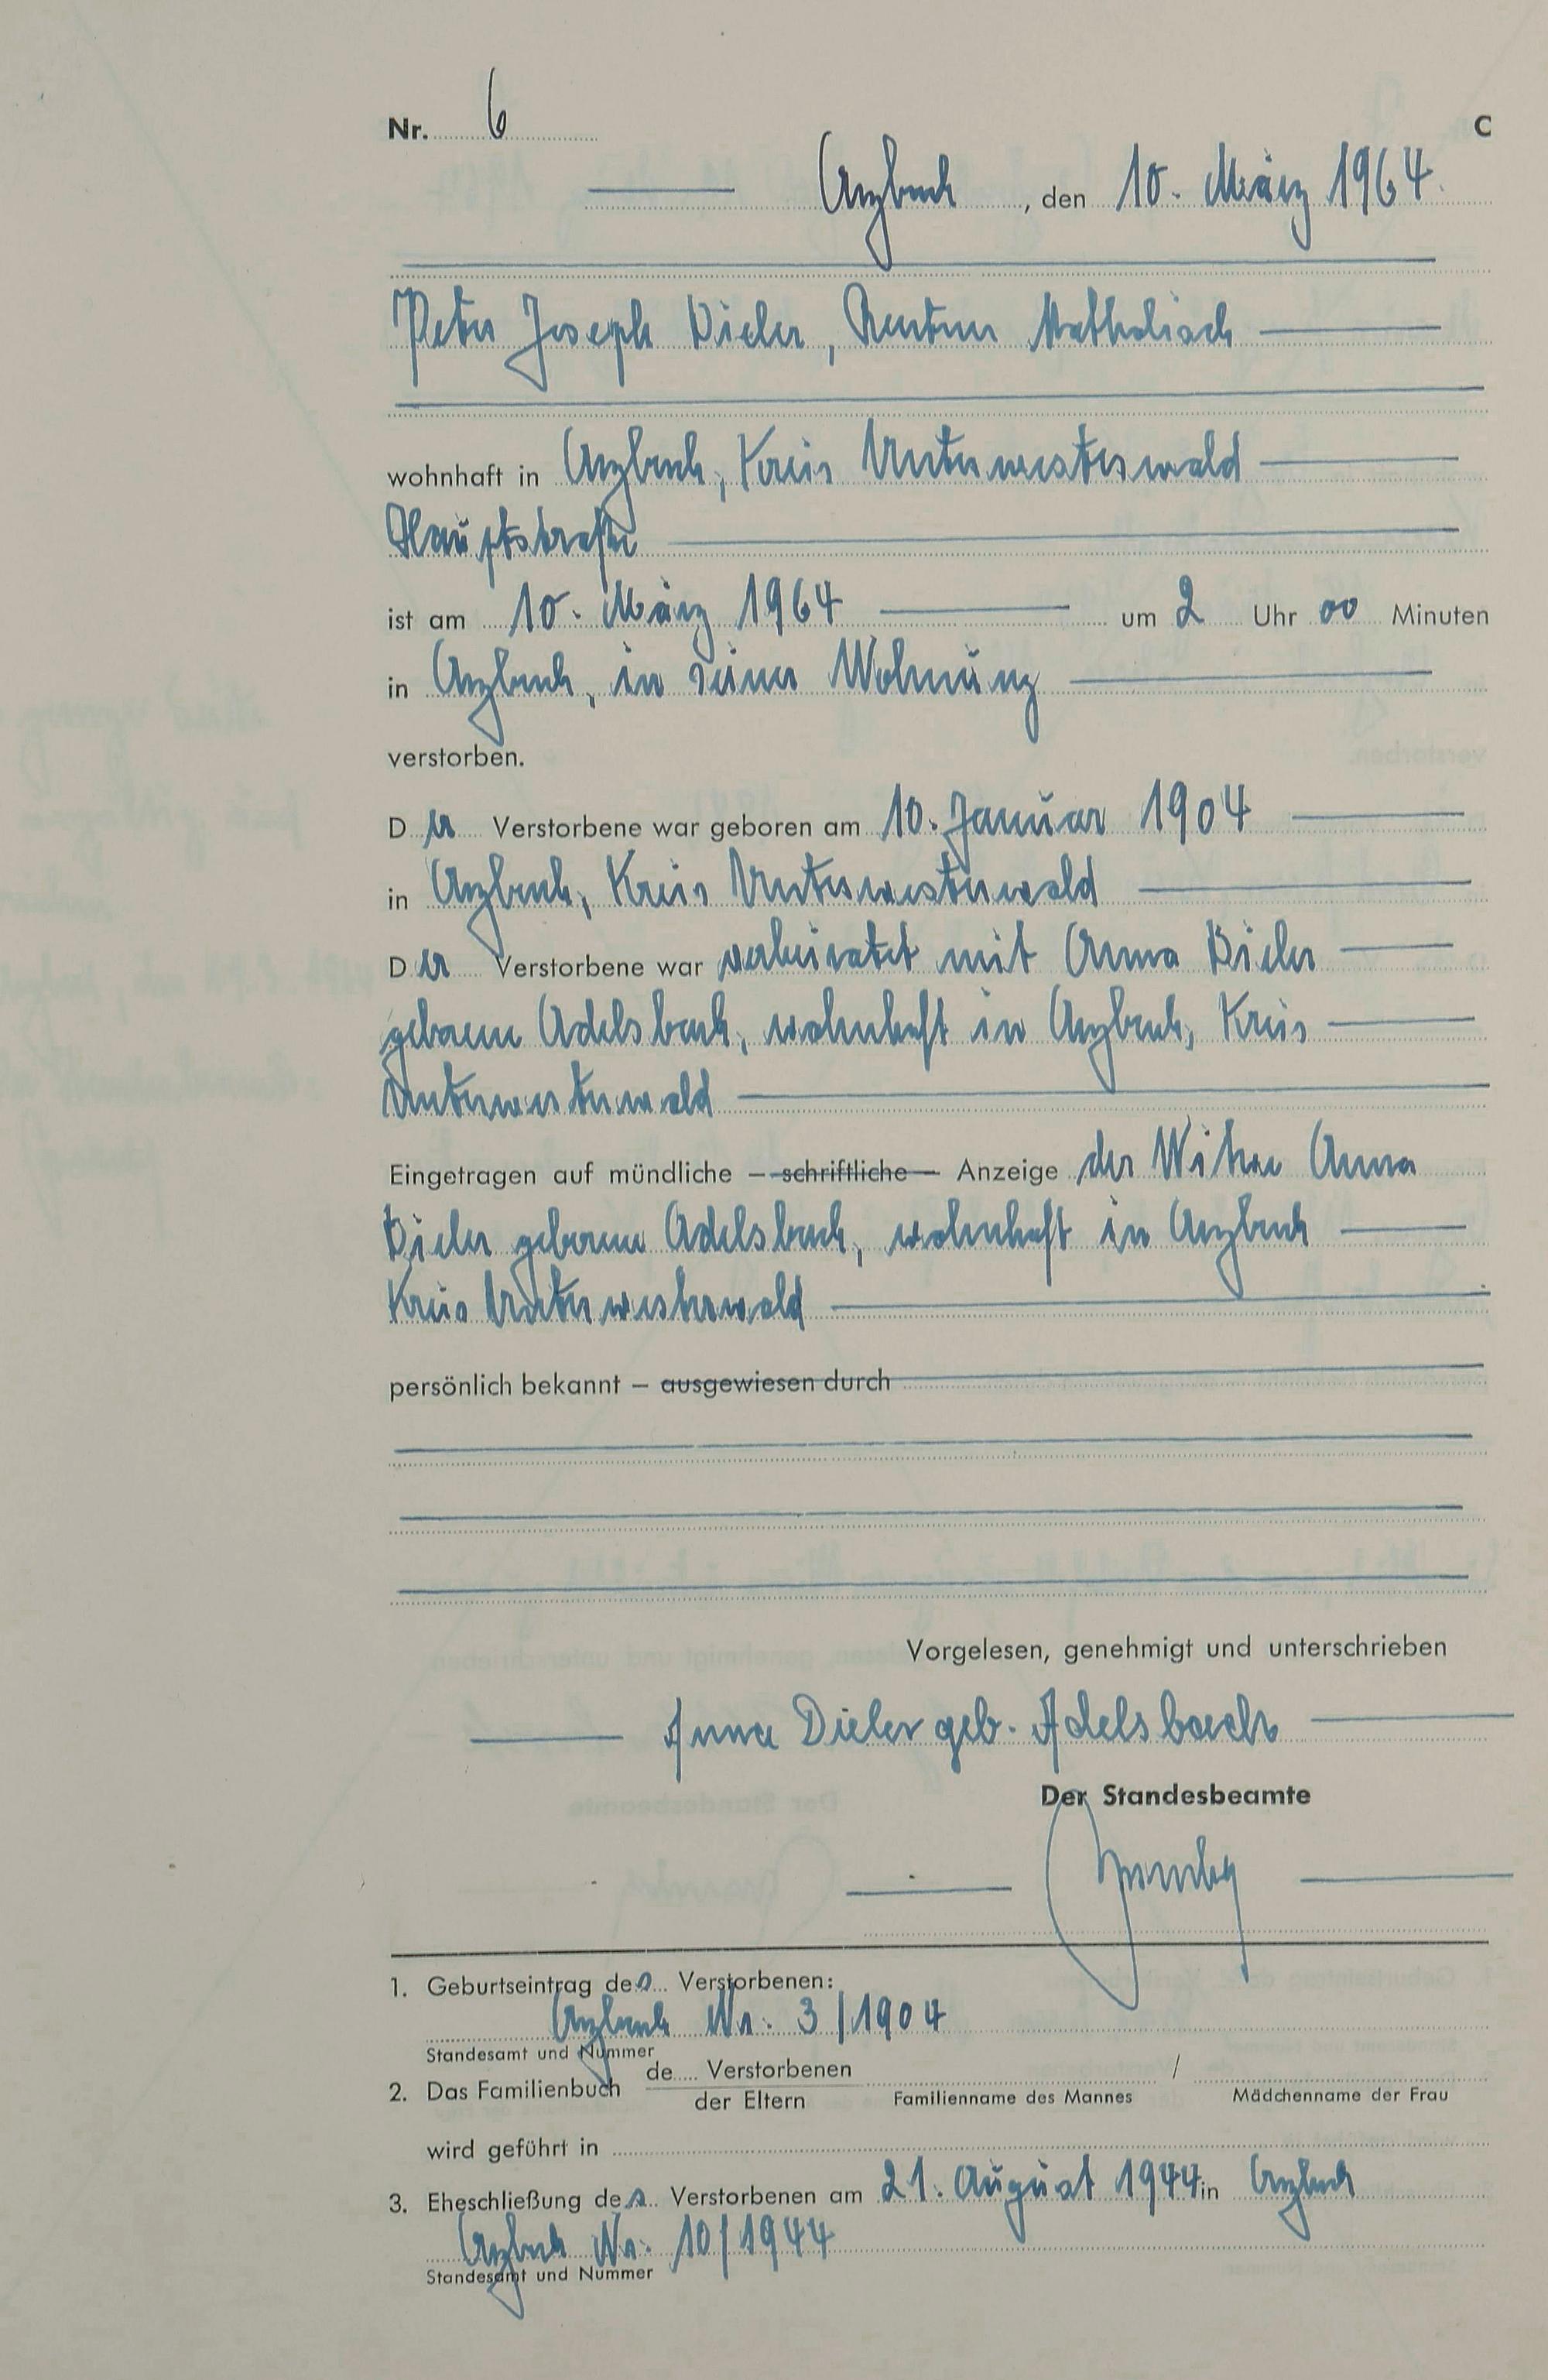 Nr. 6 C
Arzbach, den 10. März 1964.
Peter Joseph Dieler, Rentner Katholisch
wohnhaft in Arzbach, Kreis Unterwesterwald
Hauptstraße
ist am 10. März 1964 um 2 Uhr 00 Minuten
in Arzbach, in seiner Wohnung
verstorben.
Der Verstorbene war geboren am 10. Januar 1904
in Arzbach, Kreis Unterwesterwald
Der Verstorbene war verheiratet mit Anna Dieler
geborene Adelsbach, wohnhaft in Arzbach, Kreis
Unterwesterwald
Eingetragen auf mündliche – schriftliche – Anzeige der Witwe Anna
Dieler geborene Adelsbach, wohnhaft in Arzbach
Kreis Unterwesterwald
persönlich bekannt – ausgewiesen durch
Vorgelesen, genehmigt und unterschrieben
Anna Dieler geb. Adelsbach
Der Standesbeamte
1. Geburtseintrag des Verstorbenen:
Arzbach Nr. 3/1904
Standesamt und Nummer
de Verstorbenen
2. Das Familienbuch /
der Eltern Familienname des Mannes Mädchenname der Frau
wird geführt in
3. Eheschließung des Verstorbenen am 21. August 1944 in Arzbach
Arzbach Nr. 10/1944
Standesamt und Nummer